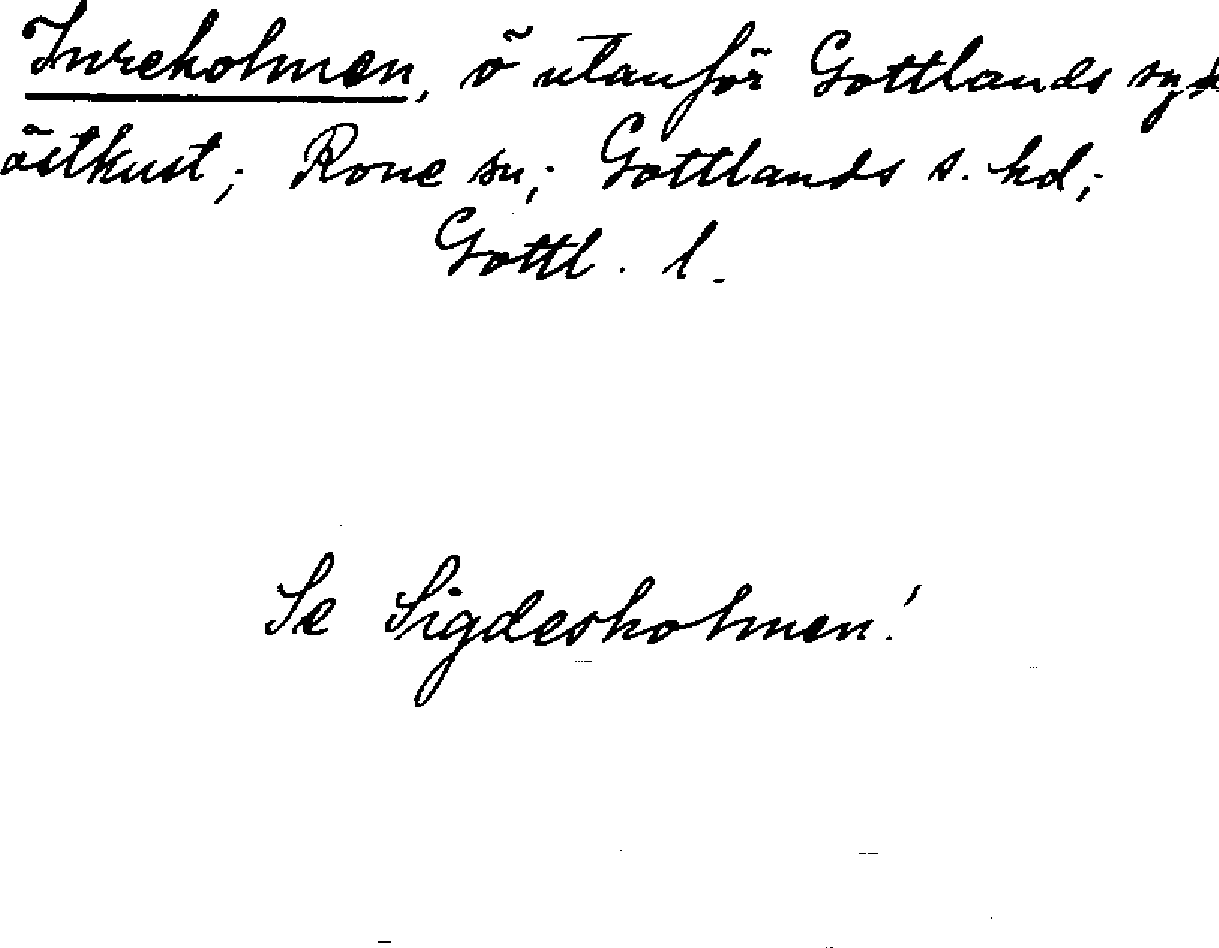 Inreholmen, ö utanför Gottlands syd
östkust; Rone sn; Gottlands s. hd;
Gottl. l.
Se Sigdesholmen!